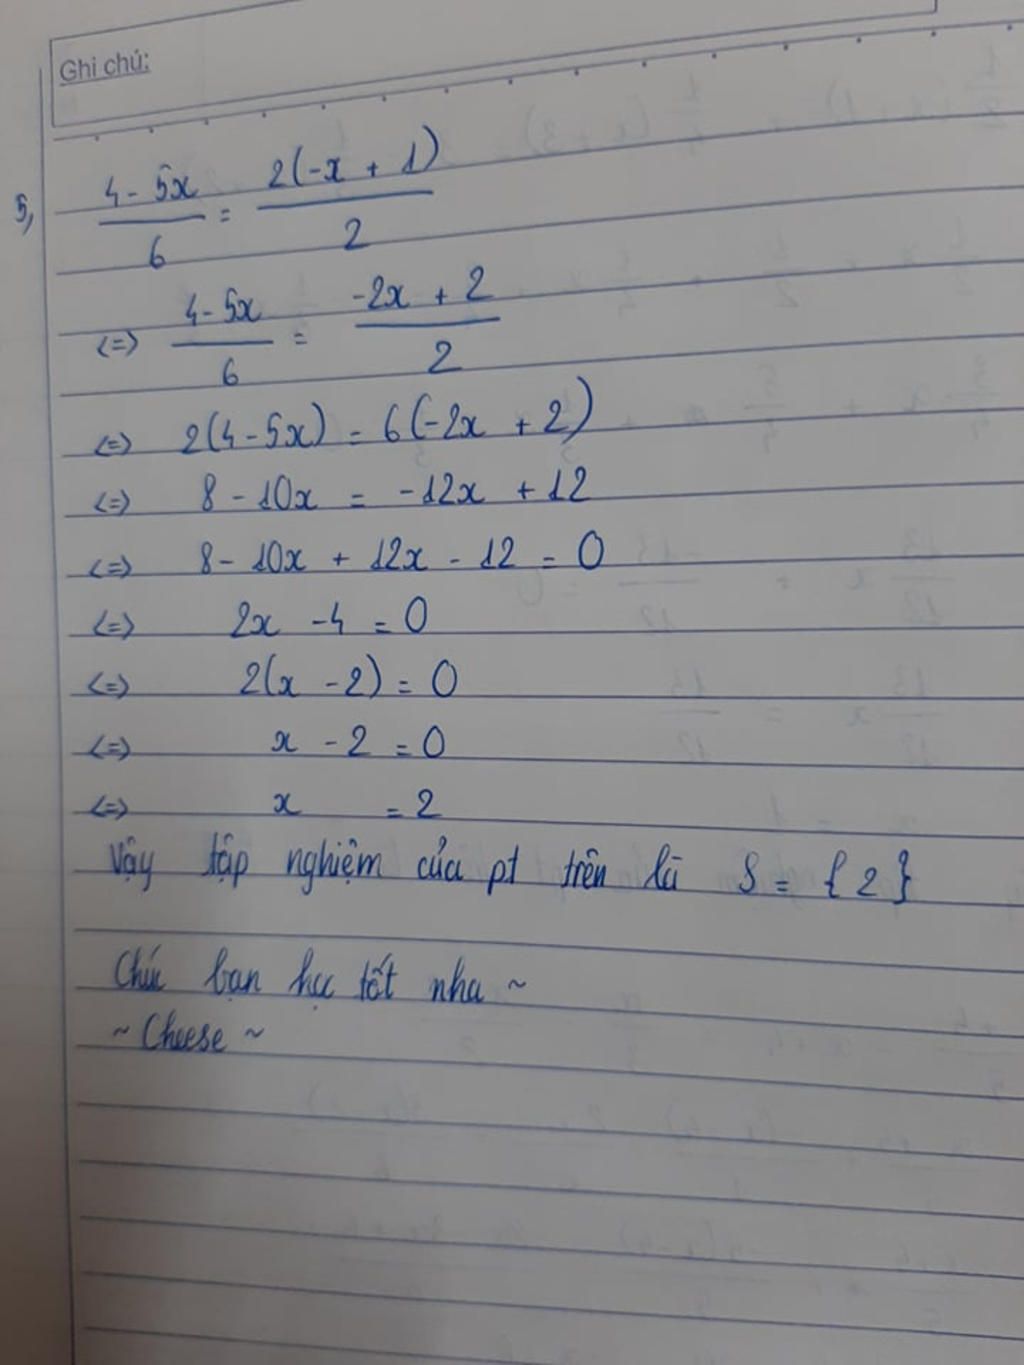 Ghi chú:
5, 4 - 5x / 6 = 2(-x + 1) / 2
<=> 4 - 5x / 6 = -2x + 2 / 2
<=> 2(4 - 5x) = 6(-2x + 2)
<=> 8 - 10x = -12x + 12
<=> 8 - 10x + 12x - 12 = 0
<=> 2x - 4 = 0
<=> 2(x - 2) = 0
<=> x - 2 = 0
<=> x = 2
Vậy tập nghiệm của pt trên là S = {2}
Chúc bạn học tốt nha ~
~ Cheese ~